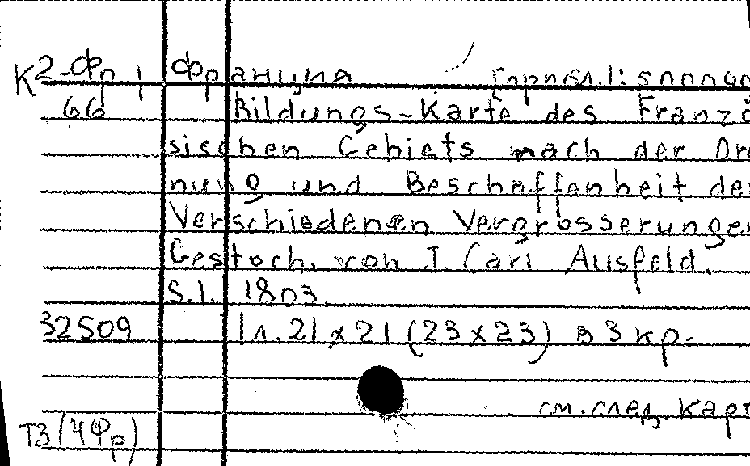 К 2-Фр 1 Франция [прибл. 1:5000000
66 Bildungs-Karte des Franzö
sischen Gebiets nach der Ord
nung und Beschaffenheit der
Verschiedenen Vergrösserungen
Gestoch. von I. Carl Ausfeld.
S.l. 1803.
32509 1л. 21 x 21 (23 x 23) в 3 кр.
см. след. карт
ТЗ (4Фр)